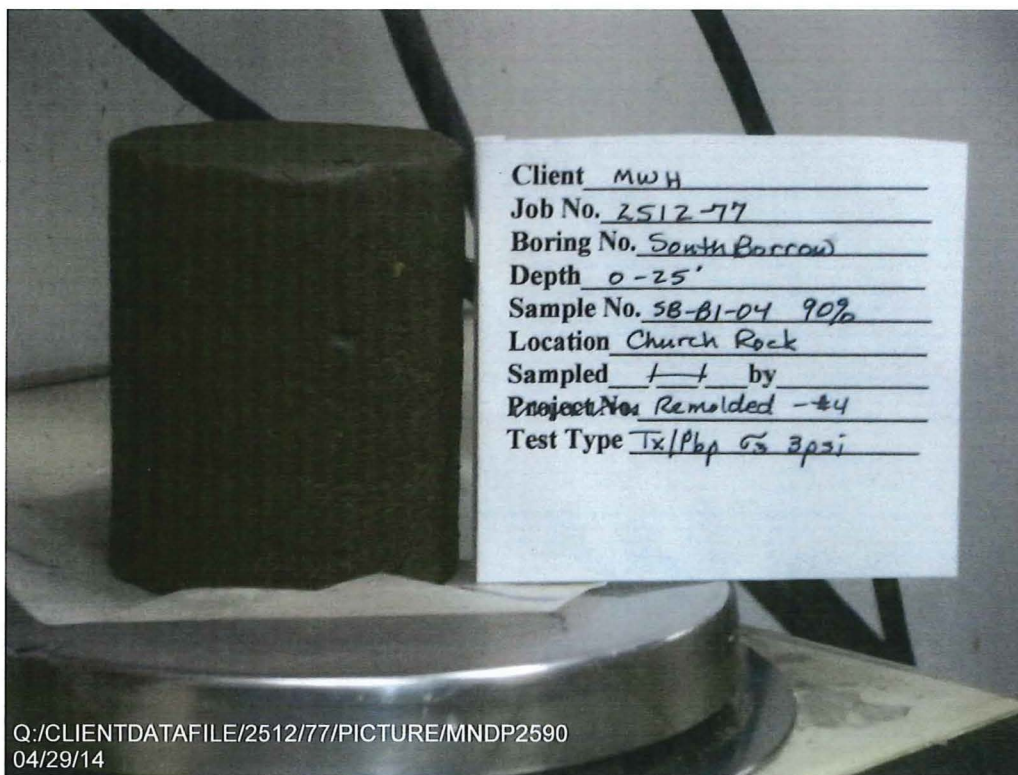 Client MWH
Job No. 2512-77
Boring No. South Borrow
Depth 0-25'
Sample No. SB-B1-04 90%
Location Church Rock
Sampled by
Project No. Remolded -#4
Test Type Tx/Pbp σ3 3psi
Q:/CLIENTDATAFILE/2512/77/PICTURE/MNDP2590
04/29/14